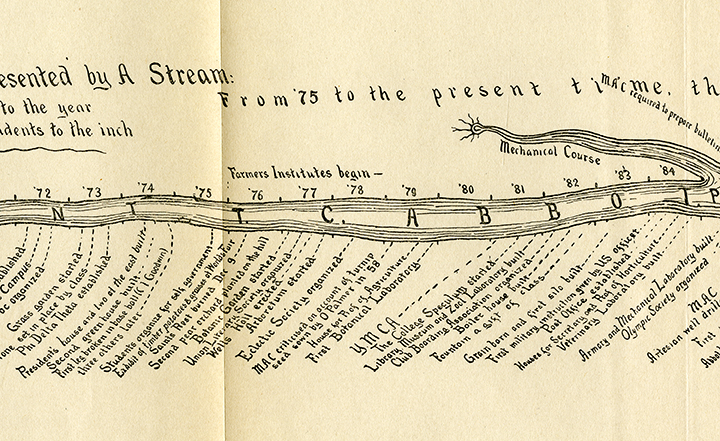 esented by A Stream:
to the year
udents to the inch
From '75 to the present time, th
MAC
required to prepare bulletins
Mechanical Course
Farmers Institutes begin—
'72 '73 '74 '75 '76 '77 '78 '79 '80 '81 '82 '83 '84
N T T. C. A B B O T. P
established
Campus
organized
Grass garden started
set in place by class
Phi Delta Theta established
Presidents house and two of the east built
Second green house built
First leg broken in base ball (Goodwin)
three others later
Students organize for self government
Exhibit of timber
Saints Rest burned Dec. 9
Second pear orchard
Union Lit.
Botanic Garden started
Wolts Lit Society organized
Arboretum started
Eclectic Society organized
MAC criticised on account of turnip
seed sown by D Palmer in '53
House for Prof of Agriculture
First Botanical Laboratory
Y M C A
The College Speculum started
Library Museum and Zool Laboratory built
Club Boarding Association organized
Boiler House built
Fountain a gift of class
Grain barn and first silo built
First military instruction given by U.S. officer
Post Office established
Houses for Secretary and Prof of Horticulture
Veterinary Laboratory built
Armory and Mechanical Laboratory built
Olympic Society organized
Artesian well
MAC
First